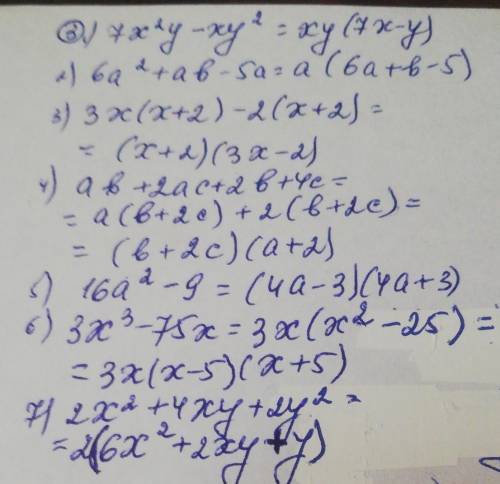 ③1) 7x²y - xy² = xy(7x-y)
2) 6a²+ab-5a=a(6a+b-5)
3) 3x(x+2)-2(x+2)=
= (x+2)(3x-2)
4) ab+2ac+2b+4c=
= a(b+2c)+2(b+2c)=
= (b+2c)(a+2)
5) 16a²-9=(4a-3)(4a+3)
6) 3x³-75x=3x(x²-25)=
= 3x(x-5)(x+5)
7) 2x²+4xy+2y²=
=2(6x²+2xy+y)